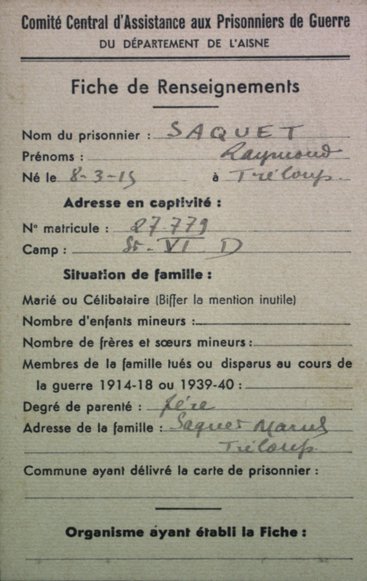 Comité Central d'Assistance aux Prisonniers de Guerre
DU DÉPARTEMENT DE L'AISNE
Fiche de Renseignements
Nom du prisonnier : SAQUET
Prénoms : Raymond
Né le 8-3-15 à Tréloup
Adresse en captivité :
N° matricule : 27.779
Camp : St. VI D
Situation de famille :
Marié ou Célibataire (Biffer la mention inutile)
Nombre d'enfants mineurs :
Nombre de frères et sœurs mineurs :
Membres de la famille tués ou disparus au cours de
la guerre 1914-18 ou 1939-40 :
Degré de parenté :
Adresse de la famille : Saquet
Tréloup
Commune ayant délivré la carte de prisonnier :
Organisme ayant établi la Fiche :